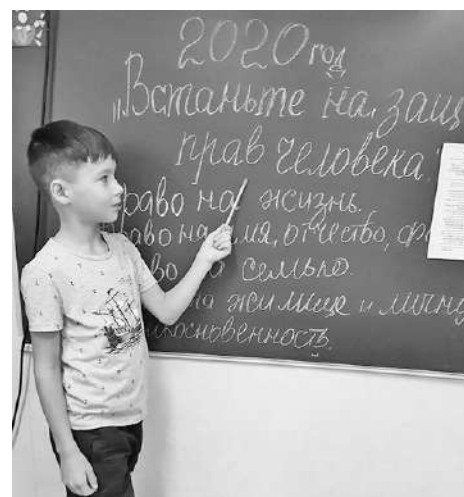 2020 год
"Встаньте на защ
прав человека."
раво на жизнь.
раво на имя, отчество, ф
во на семью.
на жилище и личну
икосновенность.